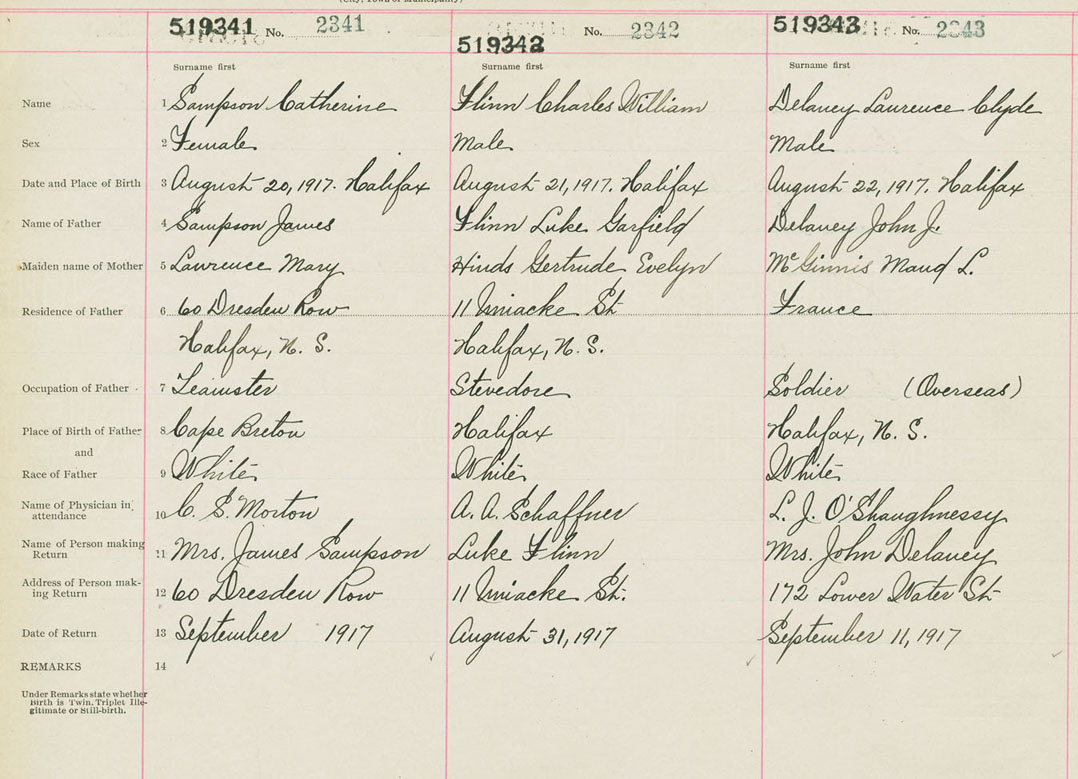 (City, Town or Municipality)
519341 No. 2341
519342 No. 2342
519343 No. 2343
Surname first Surname first Surname first
Name 1 Sampson Catherine Flinn Charles William Delaney Laurence Clyde
Sex 2 Female Male Male
Date and Place of Birth 3 August 20, 1917. Halifax August 21, 1917. Halifax August 22, 1917. Halifax
Name of Father 4 Sampson James Flinn Luke Garfield Delaney John J.
Maiden name of Mother 5 Lawrence Mary Hinds Gertrude Evelyn McGinnis Maud L.
Residence of Father 6 60 Dresden Row 11 Uniacke St France
Halifax, N. S. Halifax, N. S.
Occupation of Father 7 Teamster Stevedore Soldier (Overseas)
Place of Birth of Father 8 Cape Breton Halifax Halifax, N. S.
and
Race of Father 9 White White White
Name of Physician in attendance 10 C. S. Morton A. A. Schaffner L. J. O'Shaughnessy
Name of Person making Return 11 Mrs. James Sampson Luke Flinn Mrs. John Delaney
Address of Person mak-ing Return 12 60 Dresden Row 11 Uniacke St. 172 Lower Water St
Date of Return 13 September 1917 August 31, 1917 September 11, 1917
REMARKS 14
Under Remarks state whether
Birth is Twin. Triplet Ille-
gitimate or Still-birth.